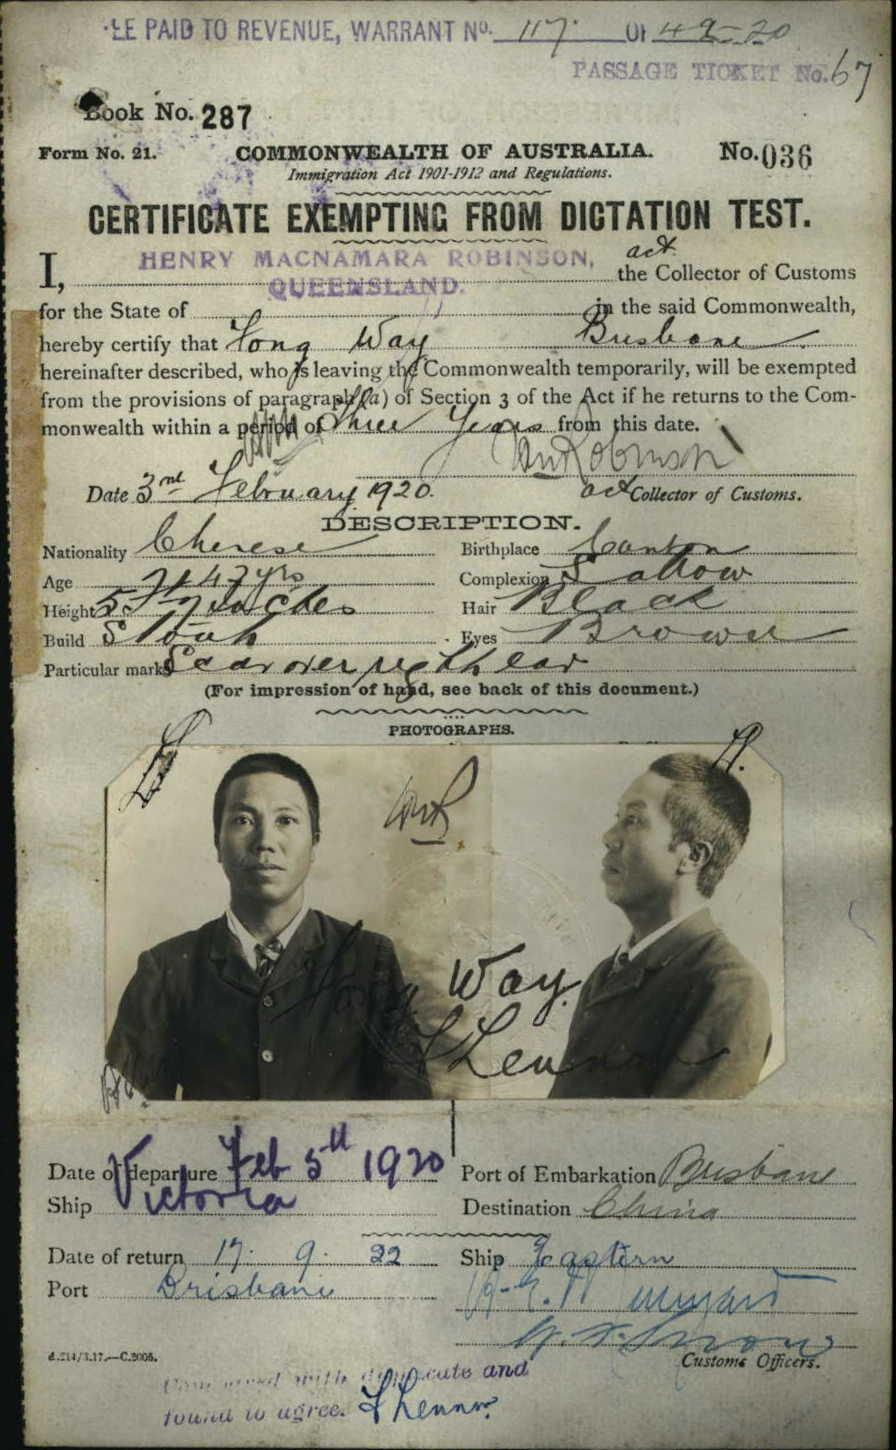 LE PAID TO REVENUE, WARRANT No. 117. OF
PASSAGE TICKET No. 67
Book No. 287
Form No. 21. COMMONWEALTH OF AUSTRALIA. No. 036
Immigration Act 1901-1912 and Regulations.
CERTIFICATE EXEMPTING FROM DICTATION TEST.
I, HENRY MACNAMARA ROBINSON, act the Collector of Customs
for the State of QUEENSLAND. in the said Commonwealth,
hereby certify that Fong Way Brisbane
hereinafter described, who is leaving the Commonwealth temporarily, will be exempted
from the provisions of paragraph (a) of Section 3 of the Act if he returns to the Com-
monwealth within a period of Three Years from this date.
HMRobinson
Date 3rd February 1920. act Collector of Customs.
DESCRIPTION.
Nationality Chinese Birthplace Canton
Age 47 yrs Complexion Sallow
Height 5 Ft 7 Inches Hair Black
Build Stout Eyes Brown
Particular marks Scar over right ear
(For impression of hand, see back of this document.)
PHOTOGRAPHS.
HMR
Fong Way.
Date of departure Feb 5th 1920 Port of Embarkation Brisbane
Ship Victoria Destination China
Date of return 17. 9. 22 Ship Eastern
Port Brisbane
Customs Officers.
d.214/3.17.—C.2005.
Compared with duplicate and
found to agree.